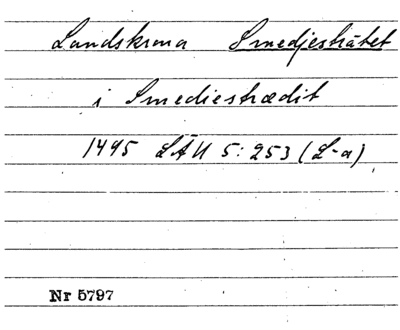 Landskrona Smedjesträtet
i Smediestrædit
1495 LÄU 5:253 (L-a)
Nr 5797